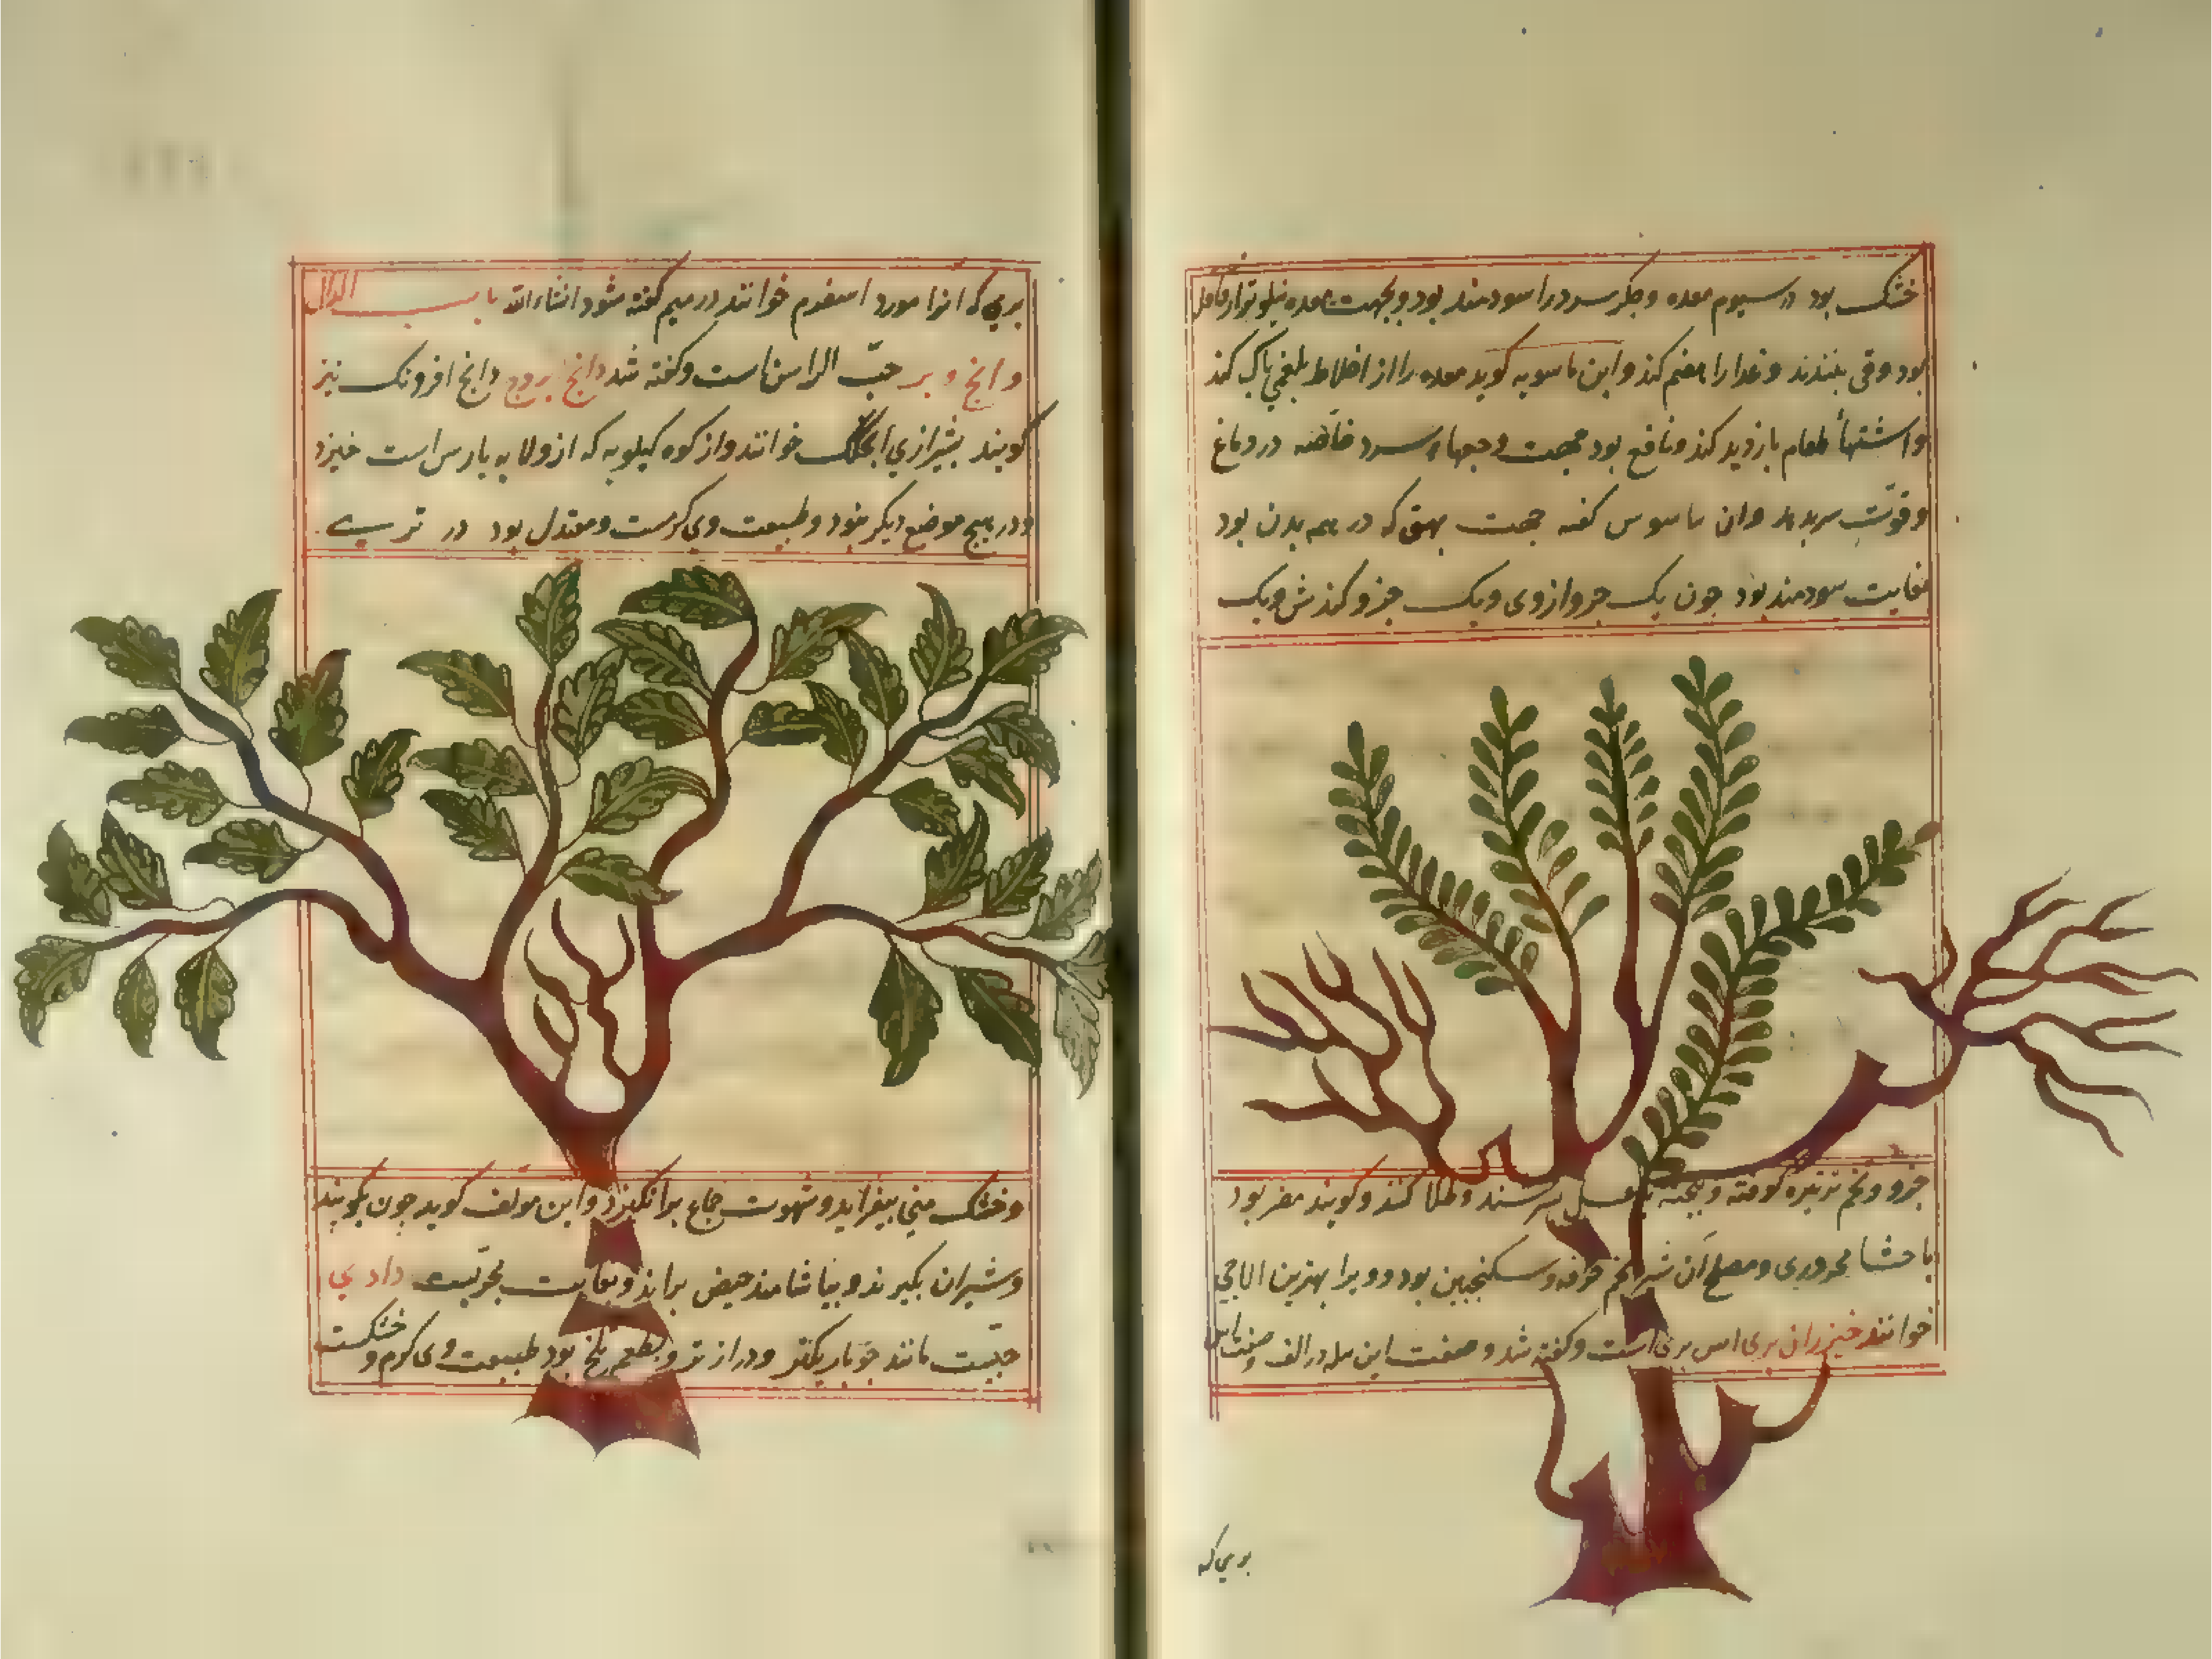 خشک بود در سیوم معده و جکر سرد را سودمند بود و بجهت معده نیلو بواز فاعل
بود و قی ببندند و غدا را هضم کند و ابن ماسویه کوید معده را از اخلاط بلغمی پاک کند
و اشتهأ طعام بازدید کند و نافع بود جهت وجعهاء سرد خاصّه در دماغ
و قوّت سر بدهد وان ماسوس کفته جهت بهق که در همه بدن بود
بغایت سودمند بود جون یک جزو از وی و یک جزو کندش و یک
جزو و تخم ترتیزه کوفته و پخته بعسل بسرشند و طلا کنند و کویند مضر بود
با حشا محروری و مصلح آن شیر تخم خرفه و سکنجبین بود و ویرا بهترین الاجی
خوانند خیزران بری اس بری است و کفته شد و صفت این مله در الف و صفت اس
بری که
بری که انرا مورد اسفرم خوانند در میم کفته شود انشاءالله باب الدال
دانج و بر حبّ الراسن است و کفته شد دانج بروج دانج افرونک نیز
کویند بشیرازی انجکک خوانند و از کوه کیلویه که از ولایه پارس است خیزد
و در هیچ موضع دیکر نبود و طبیعت وی کرمست و معتدل بود در تری
و خشک منی بیفزاید و شهوت جماع برانکیزد و ابن مولف کوید جون بکوبند
و شیر ان بکیرند و بیاشامند حیض براند و بغایت مجرّبست دادی
حبّیست مانند جو باریکتر و درازتر و بطعم تلخ بود طبیعت وی کرم و خشکست